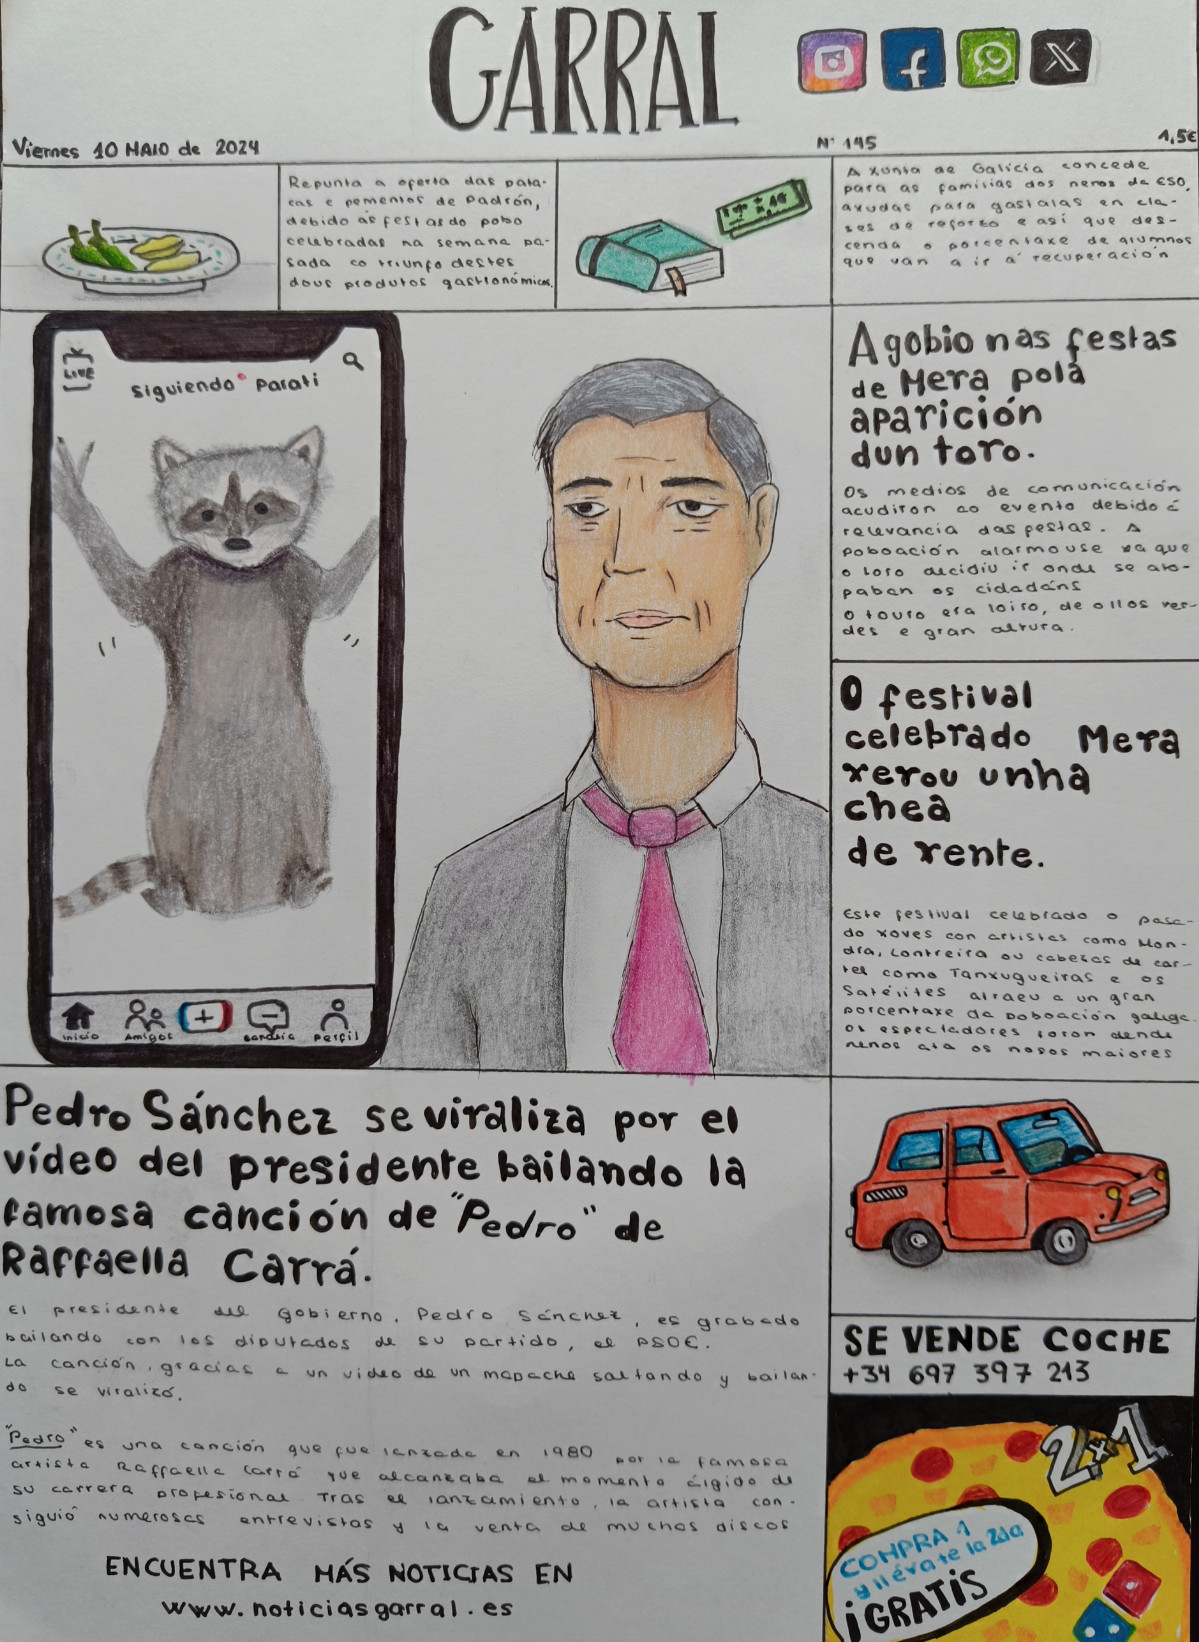 GARRAL
Viernes 10 MAIO de 2024
Nº 145
1,5€
Repunta a oferta das pata-
cas e pementos de Padrón,
debido ás festas do pobo
celebradas na semana pa-
sada co triunfo destes
dous produtos gastronómicos.
A Xunta de Galicia concede
para as familias dos nenos da ESO,
axudas para gastalas en cla-
ses de reforzo e así que des-
cenda o porcentaxe de alumnos
que van a ir á recuperación
LIVE
Siguiendo Parati
Inicio
Amigos
Bandeja
Perfil
Agobio nas festas
de Mera pola
aparición
dun toro.
Os medios de comunicación
acudiron ao evento debido á
relevancia das festas. A
poboación alarmouse xa que
o toro decidiu ir onde se ato-
paban os cidadáns
O touro era loiro, de ollos ver-
des e gran altura.
O festival
celebrado Mera
xerou unha
chea
de xente.
Este festival celebrado o pasa-
do xoves con artistas como Mon-
dra, Lontreira ou cabezas de car-
tel como Tanxugueiras e os
Satélites atraeu a un gran
porcentaxe da poboación galega.
Os espectadores foron dende
nenos ata os nosos maiores
Pedro Sánchez se viraliza por el
vídeo del presidente bailando la
famosa canción de "Pedro" de
Raffaella Carrá.
El presidente del gobierno, Pedro Sánchez, es grabado
bailando con los diputados de su partido, el PSOE.
La canción, gracias a un video de un mapache saltando y bailan-
do se viralizó.
"Pedro" es una canción que fue lanzada en 1980 por la famosa
artista Raffaella Carrá que alcanzaba el momento álgido de
su carrera profesional Tras el lanzamiento, la artista con-
siguió numerosas entrevistas y la venta de muchos discos
ENCUENTRA MÁS NOTICIAS EN
www.noticiasgarral.es
SE VENDE COCHE
+34 697 397 213
2x1
COMPRA 1
y llévate la 2da
¡GRATIS